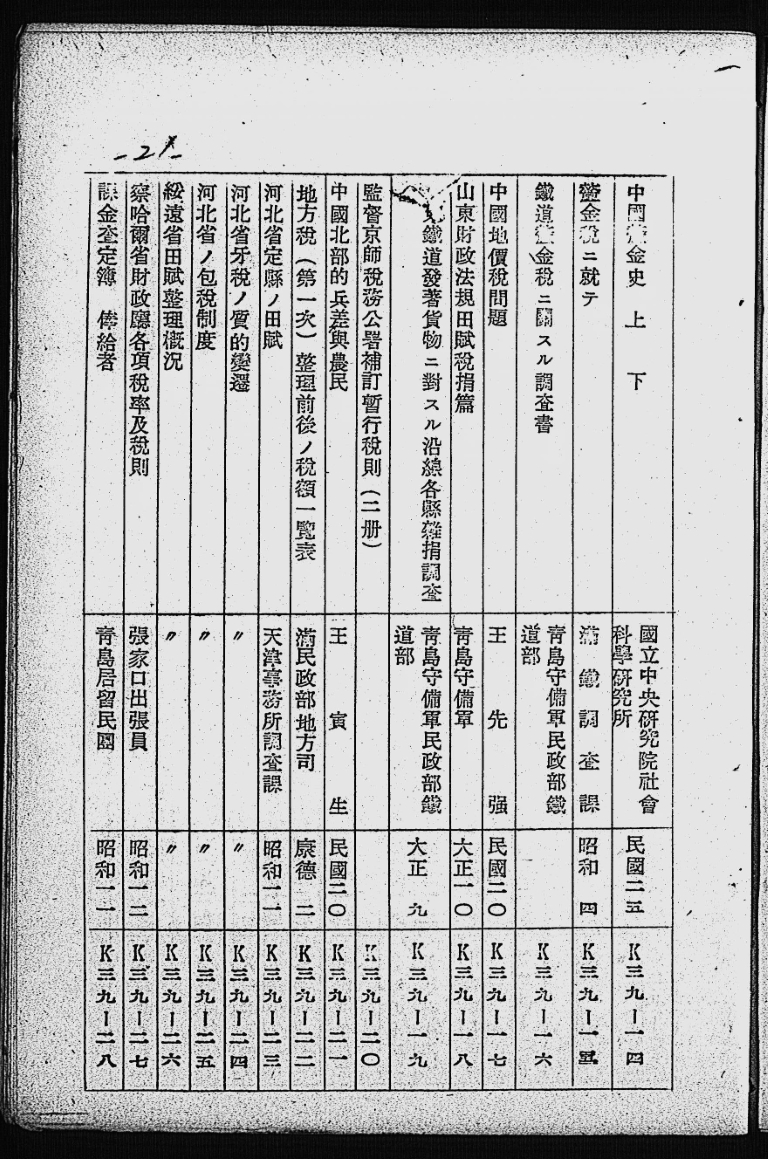 -21-
中國釐金史　上　下
國立中央研究院社會
科學研究所
民國二五
K三九ー一四
釐金稅ニ就テ
滿鐵調査課
昭和四
K三九ー一五
鐵道釐金稅ニ關スル調査書
青島守備軍民政部鐵
道部
K三九ー一六
中國地價稅問題
王先强
民國二〇
K三九ー一七
山東財政法規田賦稅捐篇
青島守備軍
大正一〇
K三九ー一八
鐵道發著貨物ニ對スル沿線各縣雜捐調査
青島守備軍民政部鐵
道部
大正九
K三九ー一九
監督京師稅務公署補訂暫行稅則（二册）
K三九ー二〇
中國北部的兵差與農民
王寅生
民國二〇
K三九ー二一
地方稅（第一次）整理前後ノ稅額一覽表
滿民政部地方司
康德二
K三九ー二二
河北省定縣ノ田賦
天津事務所調査課
昭和一一
K三九ー二三
河北省牙稅ノ質的變遷
〃
〃
K三九ー二四
河北省ノ包稅制度
〃
〃
K三九ー二五
綏遠省田賦整理槪況
〃
〃
K三九ー二六
察哈爾省財政廳各項稅率及稅則
張家口出張員
昭和一二
K三九ー二七
課金査定簿　俸給者
青島居留民團
昭和一一
K三九ー二八